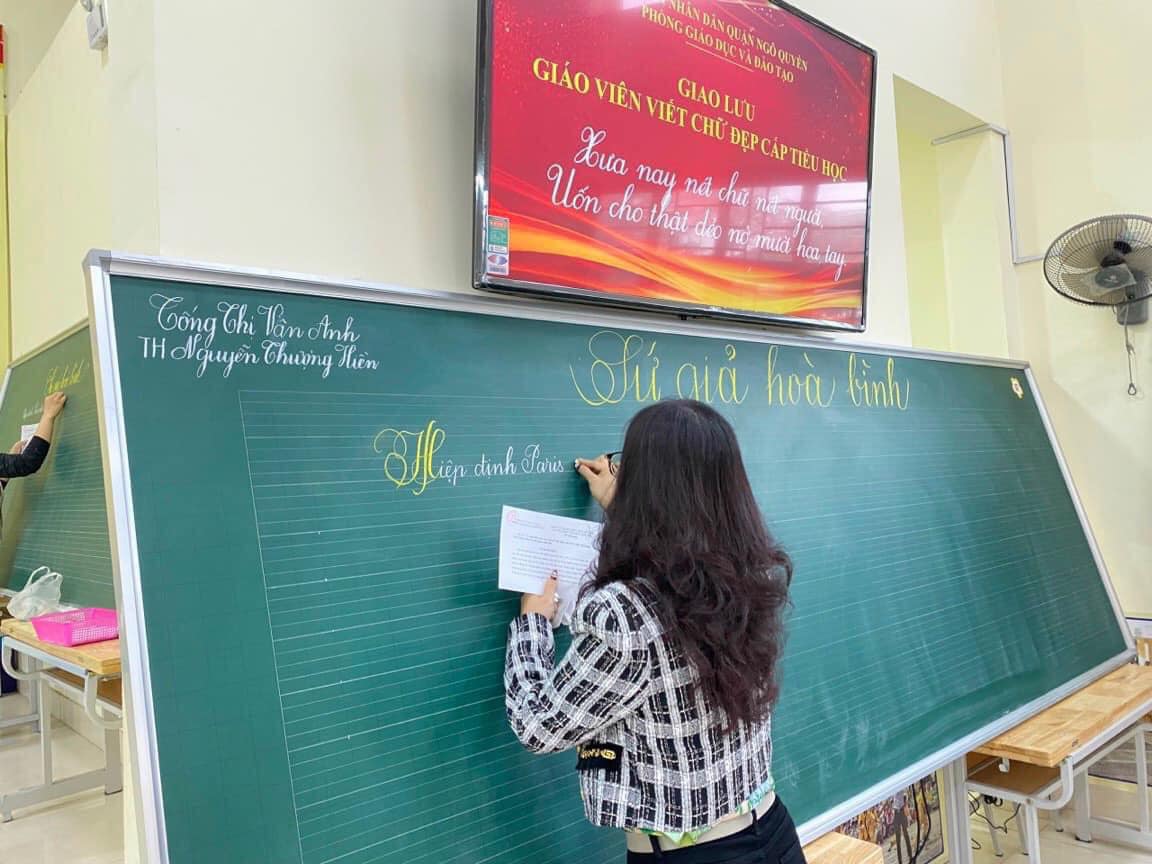 NHÂN DÂN QUẬN NGÔ QUYỀN
PHÒNG GIÁO DỤC VÀ ĐÀO TẠO
GIAO LƯU
GIÁO VIÊN VIẾT CHỮ ĐẸP CẤP TIỂU HỌC
Xưa nay nét chữ nết người,
Uốn cho thật dẻo nở mười hoa tay.
Tống Thi Vân Anh
TH Nguyễn Thượng Hiền
Sứ giả hoà bình
Hiệp định Paris